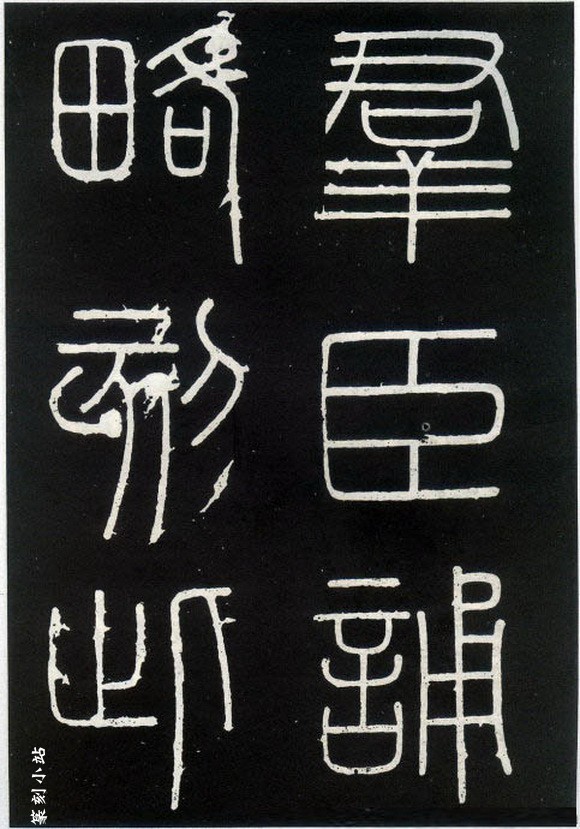 羣臣誦
略刻此
篆刻小站